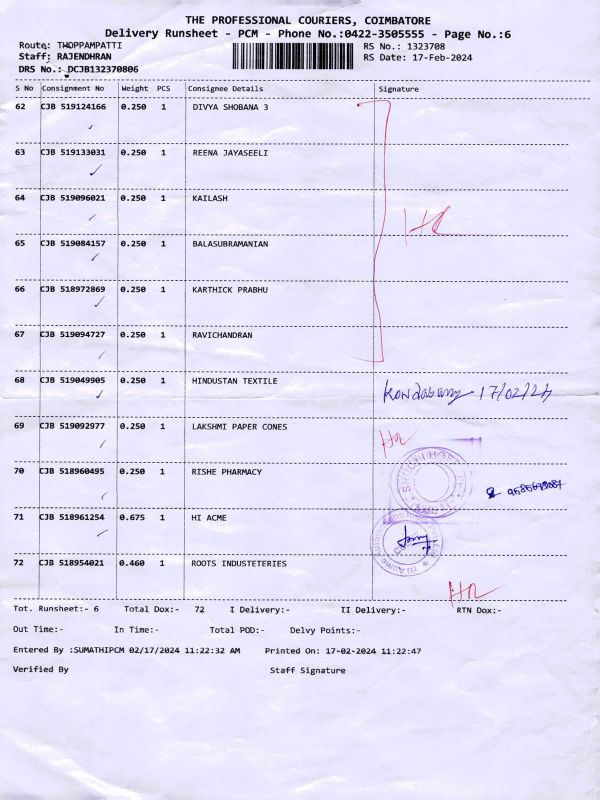 THE PROFESSIONAL COURIERS, COIMBATORE
Delivery Runsheet - PCM - Phone No.:0422-3505555 - Page No.:6
Route: THOPPAMPATTI RS No.: 1323708
Staff: RAJENDHRAN RS Date: 17-Feb-2024
DRS No.: DCJB132370806
S No Consignment No Weight PCS Consignee Details Signature
62 CJB 519124166 0.250 1 DIVYA SHOBANA 3
63 CJB 519133031 0.250 1 REENA JAYASEELI
64 CJB 519096021 0.250 1 KAILASH
65 CJB 519084157 0.250 1 BALASUBRAMANIAN
66 CJB 518972869 0.250 1 KARTHICK PRABHU
67 CJB 519094727 0.250 1 RAVICHANDRAN
68 CJB 519049905 0.250 1 HINDUSTAN TEXTILE
17/02/24
69 CJB 519092977 0.250 1 LAKSHMI PAPER CONES
70 CJB 518960495 0.250 1 RISHE PHARMACY
71 CJB 518961254 0.675 1 HI ACME
72 CJB 518954021 0.460 1 ROOTS INDUSTETERIES
Tot. Runsheet:- 6 Total Dox:- 72 I Delivery:- II Delivery:- RTN Dox:-
Out Time:- In Time:- Total POD:- Delvy Points:-
Entered By :SUMATHIPCM 02/17/2024 11:22:32 AM Printed On: 17-02-2024 11:22:47
Verified By Staff Signature